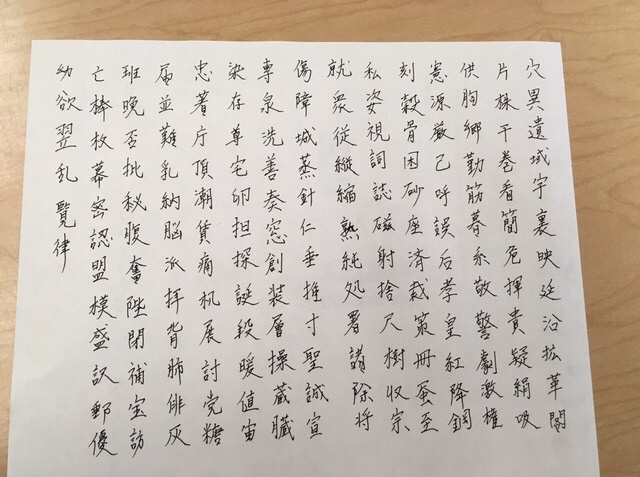 穴異遺域宇裏映延沿拡革閣
片株干巻看簡危揮貴疑絹吸
供胸郷勤筋暮系敬警劇激権
憲源厳己呼誤后孝皇紅降鋼
刻穀骨困砂座済裁策冊蚕至
私姿視詞誌磁射捨尺樹収宗
就衆従縦縮熟純処署諸除将
傷障城蒸針仁垂推寸聖誠宣
専泉洗善奏窓創装層操蔵臓
染存尊宅卵担探誕段暖値宙
忠著庁頂潮賃痛机展討党糖
届並難乳納脳派拝背肺俳灰
班晩否批秘腹奮陛閉補宝訪
亡棒枚幕密認盟模盛訳郵優
幼欲翌乱覧律